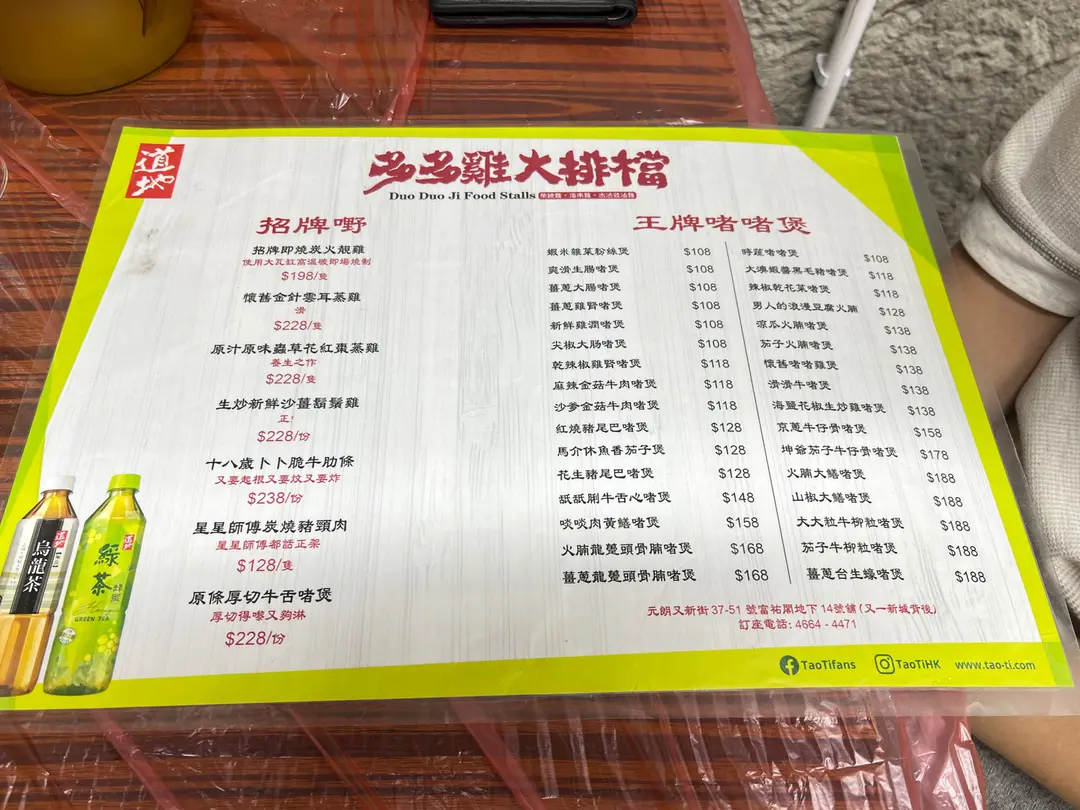 道地
多多雞大排檔
Duo Duo Ji Food Stalls
招牌嘢
招牌即燒炭火靚雞
使用大瓦缸高溫碳即場燒制
$198/隻
懷舊金針雲耳蒸雞
滑
$228/隻
原汁原味蟲草花紅棗蒸雞
養生之作
$228/隻
生炒新鮮沙薑鬍鬚雞
正!
$228/份
十八歲卜卜脆牛肋條
又要起根又要炆又要炸
$238/份
星星師傅炭燒豬頸肉
星星師傅都話正架
$128/隻
原條厚切牛舌啫煲
厚切得嚟又夠淋
$228/份
王牌啫啫煲
蝦米雜菜粉絲煲 $108
爽滑生腸啫煲 $108
薑蔥大腸啫煲 $108
薑蔥雞腎啫煲 $108
新鮮雞潤啫煲 $108
尖椒大肠啫煲 $108
乾辣椒雞腎啫煲 $118
麻辣金菇牛肉啫煲 $118
沙爹金菇牛肉啫煲 $118
紅燒豬尾巴啫煲 $128
馬介休魚香茄子煲 $128
花生豬尾巴啫煲 $128
舐舐脷牛舌心啫煲 $148
啖啖肉黃鱔啫煲 $158
火腩龍躉頭骨腩啫煲 $168
薑蔥龍躉頭骨腩啫煲 $168
時蔬啫啫煲 $108
大澳蝦醬黑毛豬啫煲 $118
辣椒乾花菜啫煲 $118
男人的浪漫豆腐火腩 $128
涼瓜火腩啫煲 $138
茄子火腩啫煲 $138
懷舊啫啫雞煲 $138
滑滑牛啫煲 $138
海鹽花椒生炒雞啫煲 $138
京蔥牛仔骨啫煲 $158
坤爺茄子牛仔骨啫煲 $178
火腩大鱔啫煲 $188
山椒大鱔啫煲 $188
大大粒牛柳粒啫煲 $188
茄子牛柳粒啫煲 $188
薑蔥台生蠔啫煲 $188
元朗又新街 37-51 號富祐閣地下 14號舖 (又一新城背後)
訂座電話: 4664 - 4471
TaoTifans TaoTiHK www.tao-ti.com
道地
烏龍茶
道地
綠茶
蜂蜜
GREEN TEA